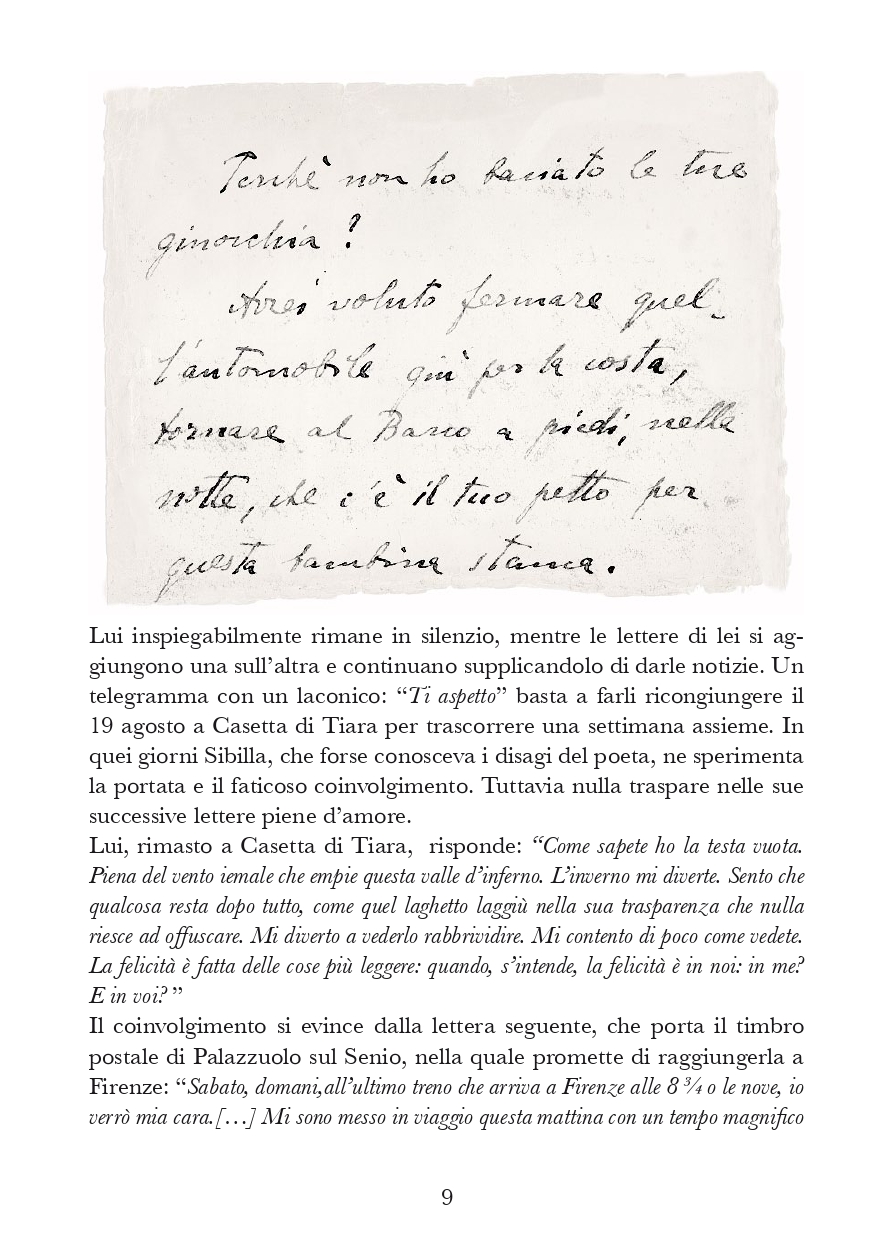 Perchè non ho baciato le tue
ginocchia ?
Avrei voluto fermare quel-
l'automobile giù per la costa,
tornare al Barco a piedi, nella
notte, che c'è il tuo petto per
questa bambina stanca.
Lui inspiegabilmente rimane in silenzio, mentre le lettere di lei si ag-
giungono una sull’altra e continuano supplicandolo di darle notizie. Un
telegramma con un laconico: “Ti aspetto” basta a farli ricongiungere il
19 agosto a Casetta di Tiara per trascorrere una settimana assieme. In
quei giorni Sibilla, che forse conosceva i disagi del poeta, ne sperimenta
la portata e il faticoso coinvolgimento. Tuttavia nulla traspare nelle sue
successive lettere piene d’amore.
Lui, rimasto a Casetta di Tiara, risponde: “Come sapete ho la testa vuota.
Piena del vento iemale che empie questa valle d’inferno. L’inverno mi diverte. Sento che
qualcosa resta dopo tutto, come quel laghetto laggiù nella sua trasparenza che nulla
riesce ad offuscare. Mi diverto a vederlo rabbrividire. Mi contento di poco come vedete.
La felicità è fatta delle cose più leggere: quando, s’intende, la felicità è in noi: in me?
E in voi? ”
Il coinvolgimento si evince dalla lettera seguente, che porta il timbro
postale di Palazzuolo sul Senio, nella quale promette di raggiungerla a
Firenze: “Sabato, domani,all’ultimo treno che arriva a Firenze alle 8 ¾ o le nove, io
verrò mia cara.[…] Mi sono messo in viaggio questa mattina con un tempo magnifico
9